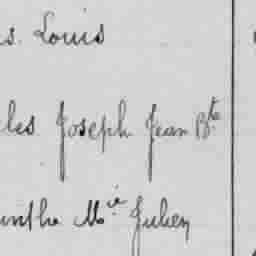 s. Louis
les Joseph Jean Bte
inthe Mie Julien